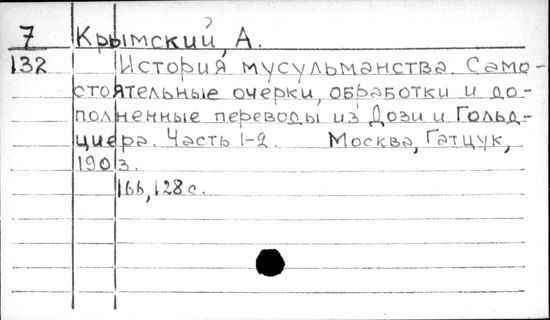 7 Крымский, А.
132 История мусульманства. Само-
стоятельные очерки, обработки и до-
полненные переводы из Дози и Гольд-
циера. Часть 1-2. Москва, Гатцук,
1903.
166, 128 с.